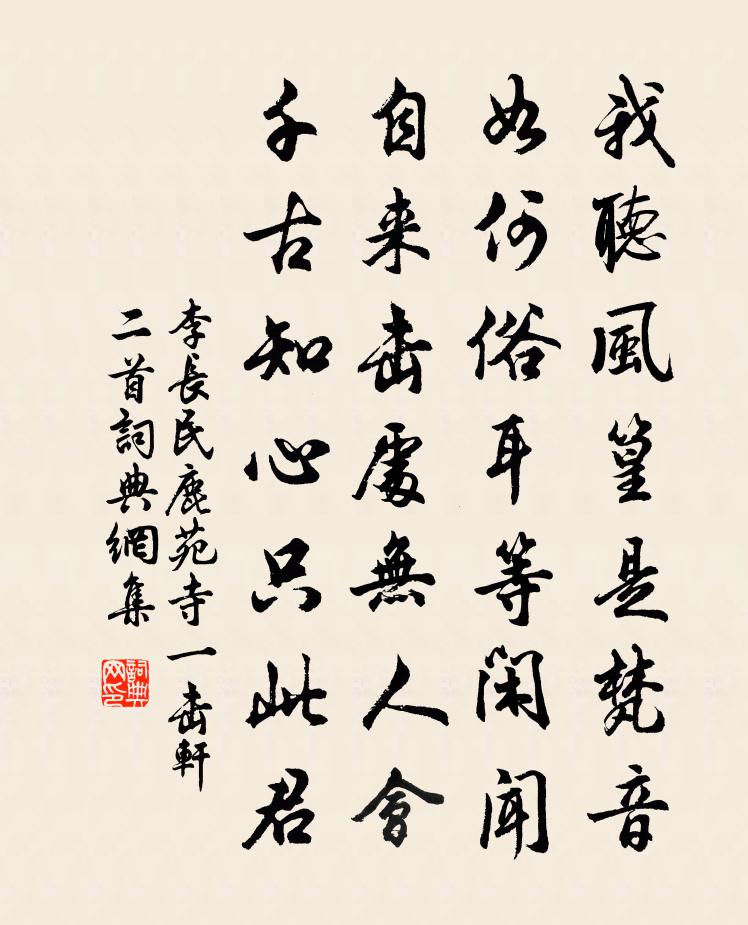 我聽風篁是梵音
如何俗耳等閑聞
自来击處無人會
千古知心只此君
李長民鹿苑寺一击軒
二首詞典網集
詞典
网印